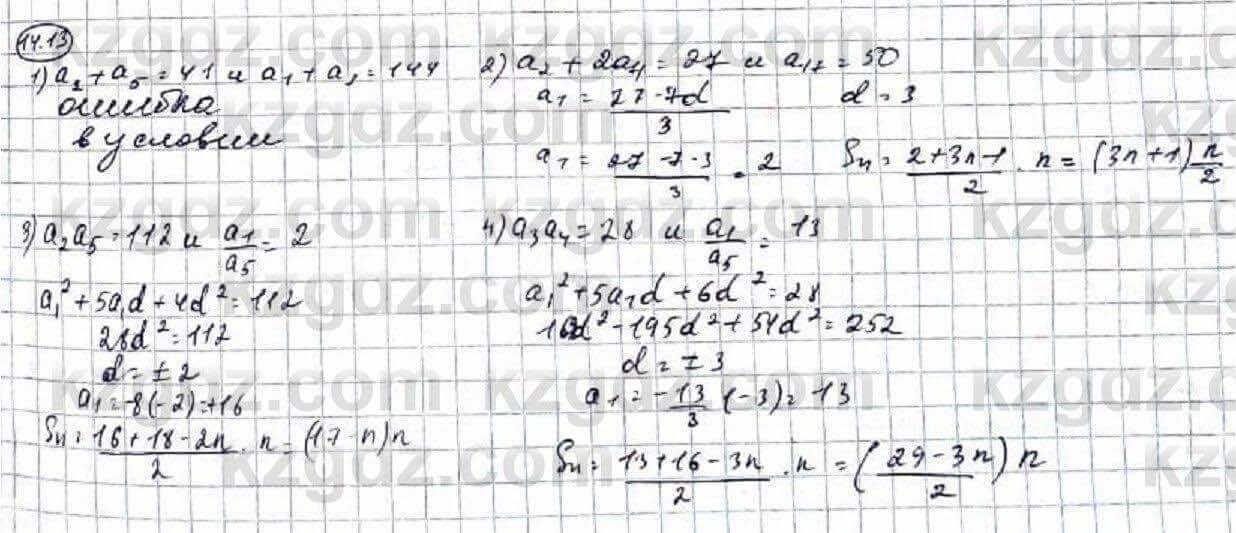 14.13
1) a₂ + a₅ = 41 и a₁ + a₁ = 144
ошибка
в условии
2) a₂ + 2a₄ = 27 и a₁₇ = 50
a₁ = (27 - 7d)/3    d = 3
a₁ = (27 - 7·3)/3 = 2    Sₙ = (2 + 3n - 1)/2 · n = (3n + 1) n/2
3) a₂a₅ = 112 и a₁/a₅ = 2
a₁² + 5a₁d + 4d² = 112
28d² = 112
d = ±2
a₁ = -8(-2) = +16
Sₙ = (16 + 18 - 2n)/2 · n = (17 - n)n
4) a₃a₄ = 28 и a₁/a₅ = 13
a₁² + 5a₁d + 6d² = 28
d² - 195d² + 54d² = 252
d = ±3
a₁ = -13/3 (-3) = 13
Sₙ = (13 + 16 - 3n)/2 · n = ((29 - 3n)/2) n
kzgdz.com